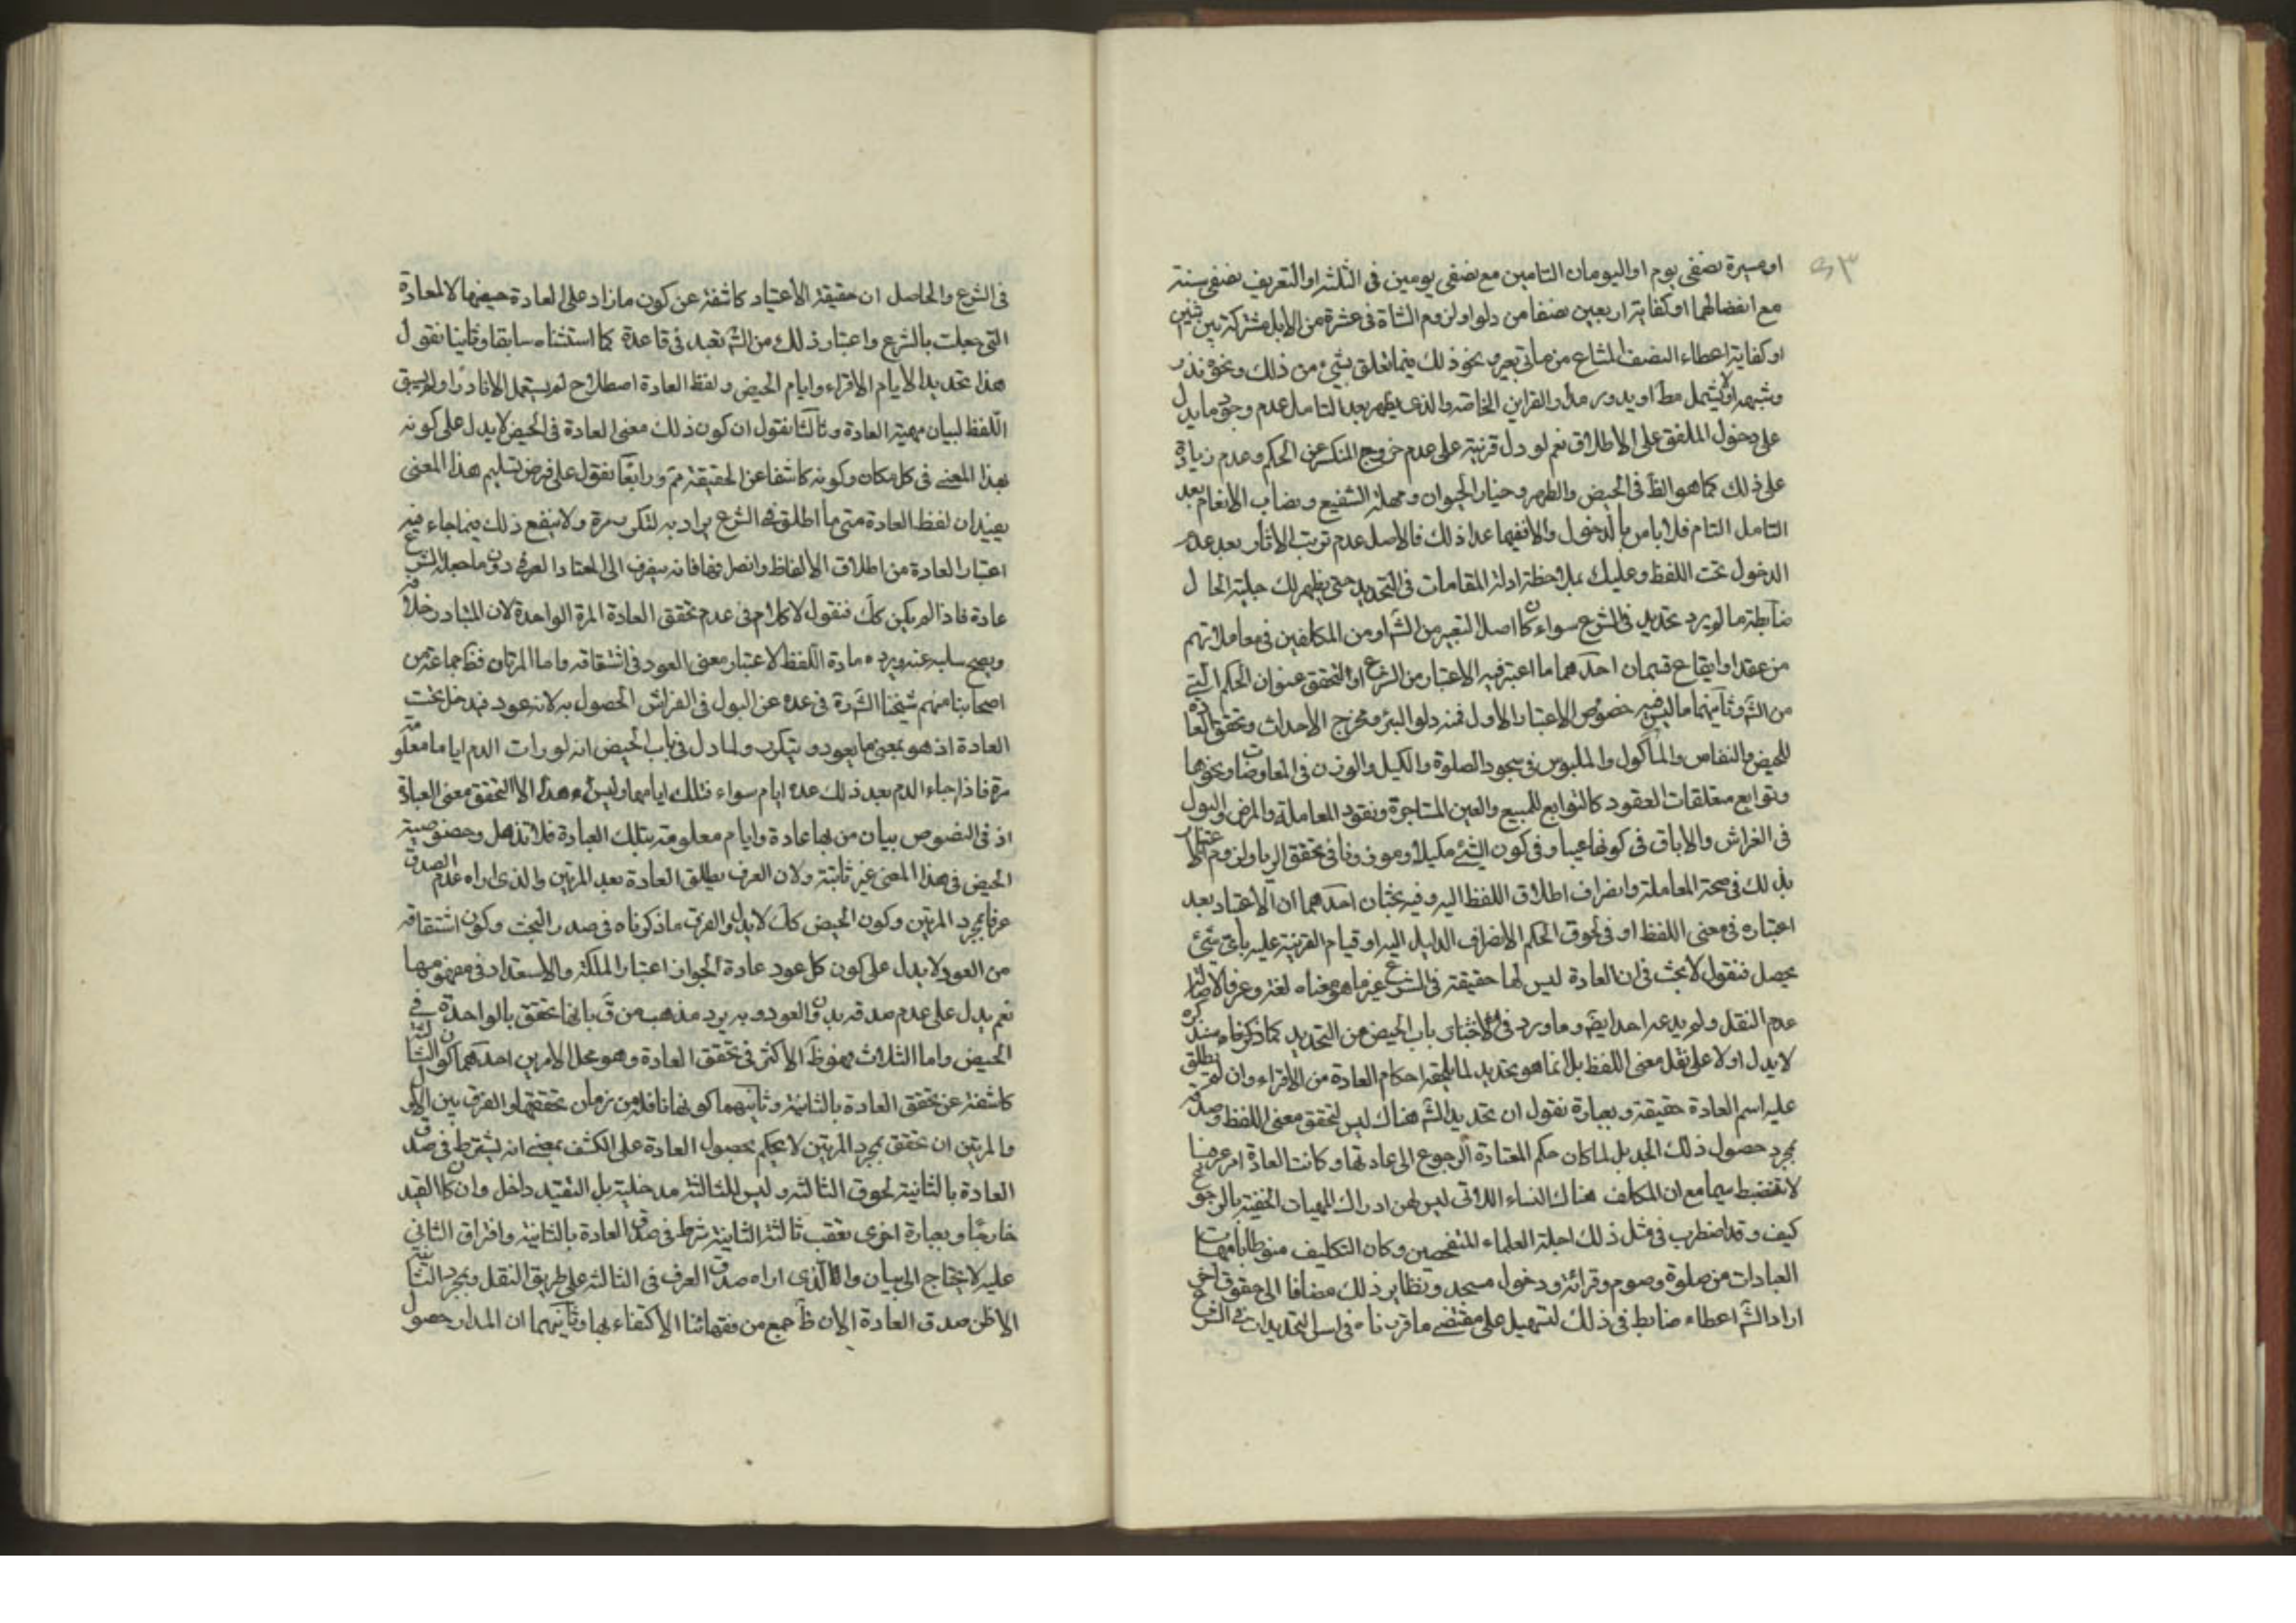 او مسيرة نصفي يوم او اليومان التامين مع نصفي يومين في الثلثه او التعريف نصفي سنة
مع انفصالهما او كفاية اربعين نصفا من دلو او لزوم الشاة في عشرة من الابل مشتركة بين اثنين
او كفاية اعطاء النصف المشاع من مأتي بعير و نحو ذلك فيما تعلق بشيء من ذلك و نحوه نذر
و شبهه او لا يشمل مط او يدور مدار القراين الخاصة و الذي يظهر بعد التامل عدم وجود ما يدل
على دخول الملفق على الاطلاق نعم لو دل قرينة على عدم خروج المنكسر عن الحكم و عدم زيادة
على ذلك كما هو الظ في الحيض و الطهر و خيار الحيوان و مهلة الشفيع و نصاب الانعام بعد
التامل التام فلا باس بالدخول و الا ففيما عدا ذلك فالاصل عدم ترتب الاثار بعد عدم
الدخول تحت اللفظ و عليك بملاحظة ادلة المقامات في التحديد حتى يظهر لك جلية الحال
ضابطة ما لم يرد تحديد في الشرع سواء كان اصل التعبير من الش او من المكلفين في معاملاتهم
من عقد او ايقاع قسمان احدهما ما اعتبر فيه الاعتبار من الشرع او لتحقق عنوان الحكم الاتي
من الش و ثانيهما ما ليس فيه خصوص الاعتبار الاول فمنه دلو البئر و مخرج الاحداث و تحقق العادة
للحيض و النفاس و المأكول و الملبوس في سجود الصلوة و الكيل و الوزن في المعاوضات و نحوها
و توابع متعلقات العقود كالتوابع للمبيع و العين المستاجرة و نقود المعاملة و المرض و البول
في الفراش و الاباق في كونها عيبا و في كون الشئ مكيلا و موزونا في تحقق الربا و لزوم اعتبار
بذلك في صحة المعاملة و انصراف اطلاق اللفظ اليه و فيه بحثان احدهما ان الاعتياد بعد
اعتباره في معنى اللفظ او في لحوق الحكم لانصراف الدليل اليه او قيام القرينة عليه باي شئ
يحصل فنقول لا بحث في ان العادة ليس لها حقيقة في الشرع غير ما هو معناه لغة و عرفا لاصالة
عدم النقل و لم يدعه احد ايضا و ما ورد في الاخبار باب الحيض من التحديد كما ذكرناه
لا يدل اولا على نقل معنى اللفظ بل انما هو تحديد لما يلحقه احكام العادة من الاقراء و ان لم يطلق
عليه اسم العادة حقيقة و بعبارة نقول ان تحديد الش هناك ليس لتحقق معنى اللفظ و صدقه
بمجرد حصول ذلك الحد بل لما كان حكم المعتادة الرجوع الى عادتها و كانت العادة امر عرضيا
لا تنضبط سيما مع ان المكلف هناك النساء اللاتي ليس لهن ادراك المهيات الخفية بالرجوع
كيف و قد اضطرب في مثل ذلك اجلة العلماء المتفحصين و كان التكليف منوطا بامهات
العبادات من صلوة و صوم و قرائة و دخول مسجد و نظاير ذلك مضافا الى حقوق اخر
اراد الش اعطاء ضابط في ذلك لتسهيل على مقتضى ما قررناه في اسل التحديدات في الشرع
في الشرع و الحاصل ان حقيقة الاعتياد كاشفة عن كون ما زاد على العادة حيضها لا العادة
التي جعلت بالشرع و اعتبار ذلك من الش تعبد في قاعدة كما استثناه سابقا و ثانيا نقول
هذا تحديد الايام الاقراء و ايام الحيض و لفظ العادة اصطلاح لم يستعمل الا نادرا و لم يسبق
اللفظ لبيان مهية العادة و ثالثا نقول ان كون ذلك معنى العادة في الحيض لا يدل على كونه
بهذا المعنى في كل مكان و كونه كاشفا عن الحقيقة مم و رابعا نقول على فرض تسليم هذا المعنى
يفيد ان لفظ العادة متى ما اطلق في الشرع يراد به لتكرر مرة و لا ينفع ذلك فيما جاء فيه
اعتبار العادة من اطلاق الالفاظ و انصرافها فانه ينصرف الى المعتاد العرفي دون ما جعله الشرع
عادة فاذا لم يكن كك فنقول لا كلام في عدم تحقق العادة المرة الواحدة لان المتبادر خلافه
و يصح سلبه عنه و يرده مادة اللفظ لاعتبار معنى العود في اشتقاقه و اما المرتان فظ جماعة من
اصحابنا منهم شيخنا الش ره في عده عن البول في الفراش الحصول به لانه عود فيدخل تحت
العادة اذ هو بمعنى ما يعود و يتكرر و لما دل في باب الحيض انه لو رات الدم اياما معلومة
مرة فاذا جاء الدم بعد ذلك عدة ايام سواء فتلك ايامها و ليس هذا الا لتحقق معنى العبادة
اذ في النصوص بيان من لها عادة و ايام معلومة بتلك العبادة فلا تذهل و خصوصية
الحيض في هذا المعنى غير ثابتة و لان العرف يطلق العادة بعد المرتين و الذي اراه عدم الصدق
عرفا بمجرد المرتين و كون الحيض كك لا يدل و الفرق ما ذكرناه في صدر البحث و كون اشتقاقه
من العود لا يدل على كون كل عود عادة لجواز اعتبار الملكة و الاستعداد في مفهومها
نعم يدل على عدم صدقه بدون العود و به يرد مذهب من ق بانها تتحقق بالواحدة في
الحيض و اما الثلاث فهو ظ الاكثر في تحقق العادة و هو محل الامرين احدهما كون الثالثة
كاشفة عن تحقق العادة بالثانية و ثانيهما كونها ناقلة من زمان تحققها و الفرق بين الاول
و المرتين ان تحقق بمجرد المرتين لا يحكم بحصول العادة على الكشف بمعنى انه يشترط في صدق
العادة بالثانية لحوق الثالثه و ليس للثالثة مدخلية بل التقيد داخل و ان كان القيد
خارجا و بعبارة اخرى تعقب ثالثة الثانية شرط في صدق العادة بالثانية و افتراق الثاني
عليه لا يحتاج الى بيان و الذي اراه صدق العرف في الثالثه على طريق النقل و بمجرد الثالثة
الا ظن صدق العادة الان ظ جمع من فقهائنا الاكتفاء بها و ثانيهما ان المدار حصول